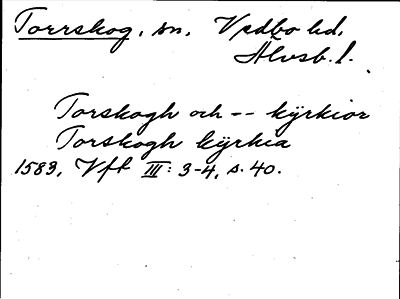 Torrskog, sn, Vedbo hd,
Älvsb. l.
Torskogh och -- kÿrkior
Torskogh kÿrkia
1583, Vft III: 3-4, s. 40.